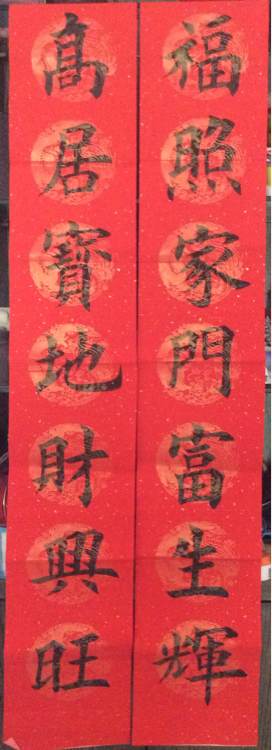 福照家門富生輝
高居寶地財興旺